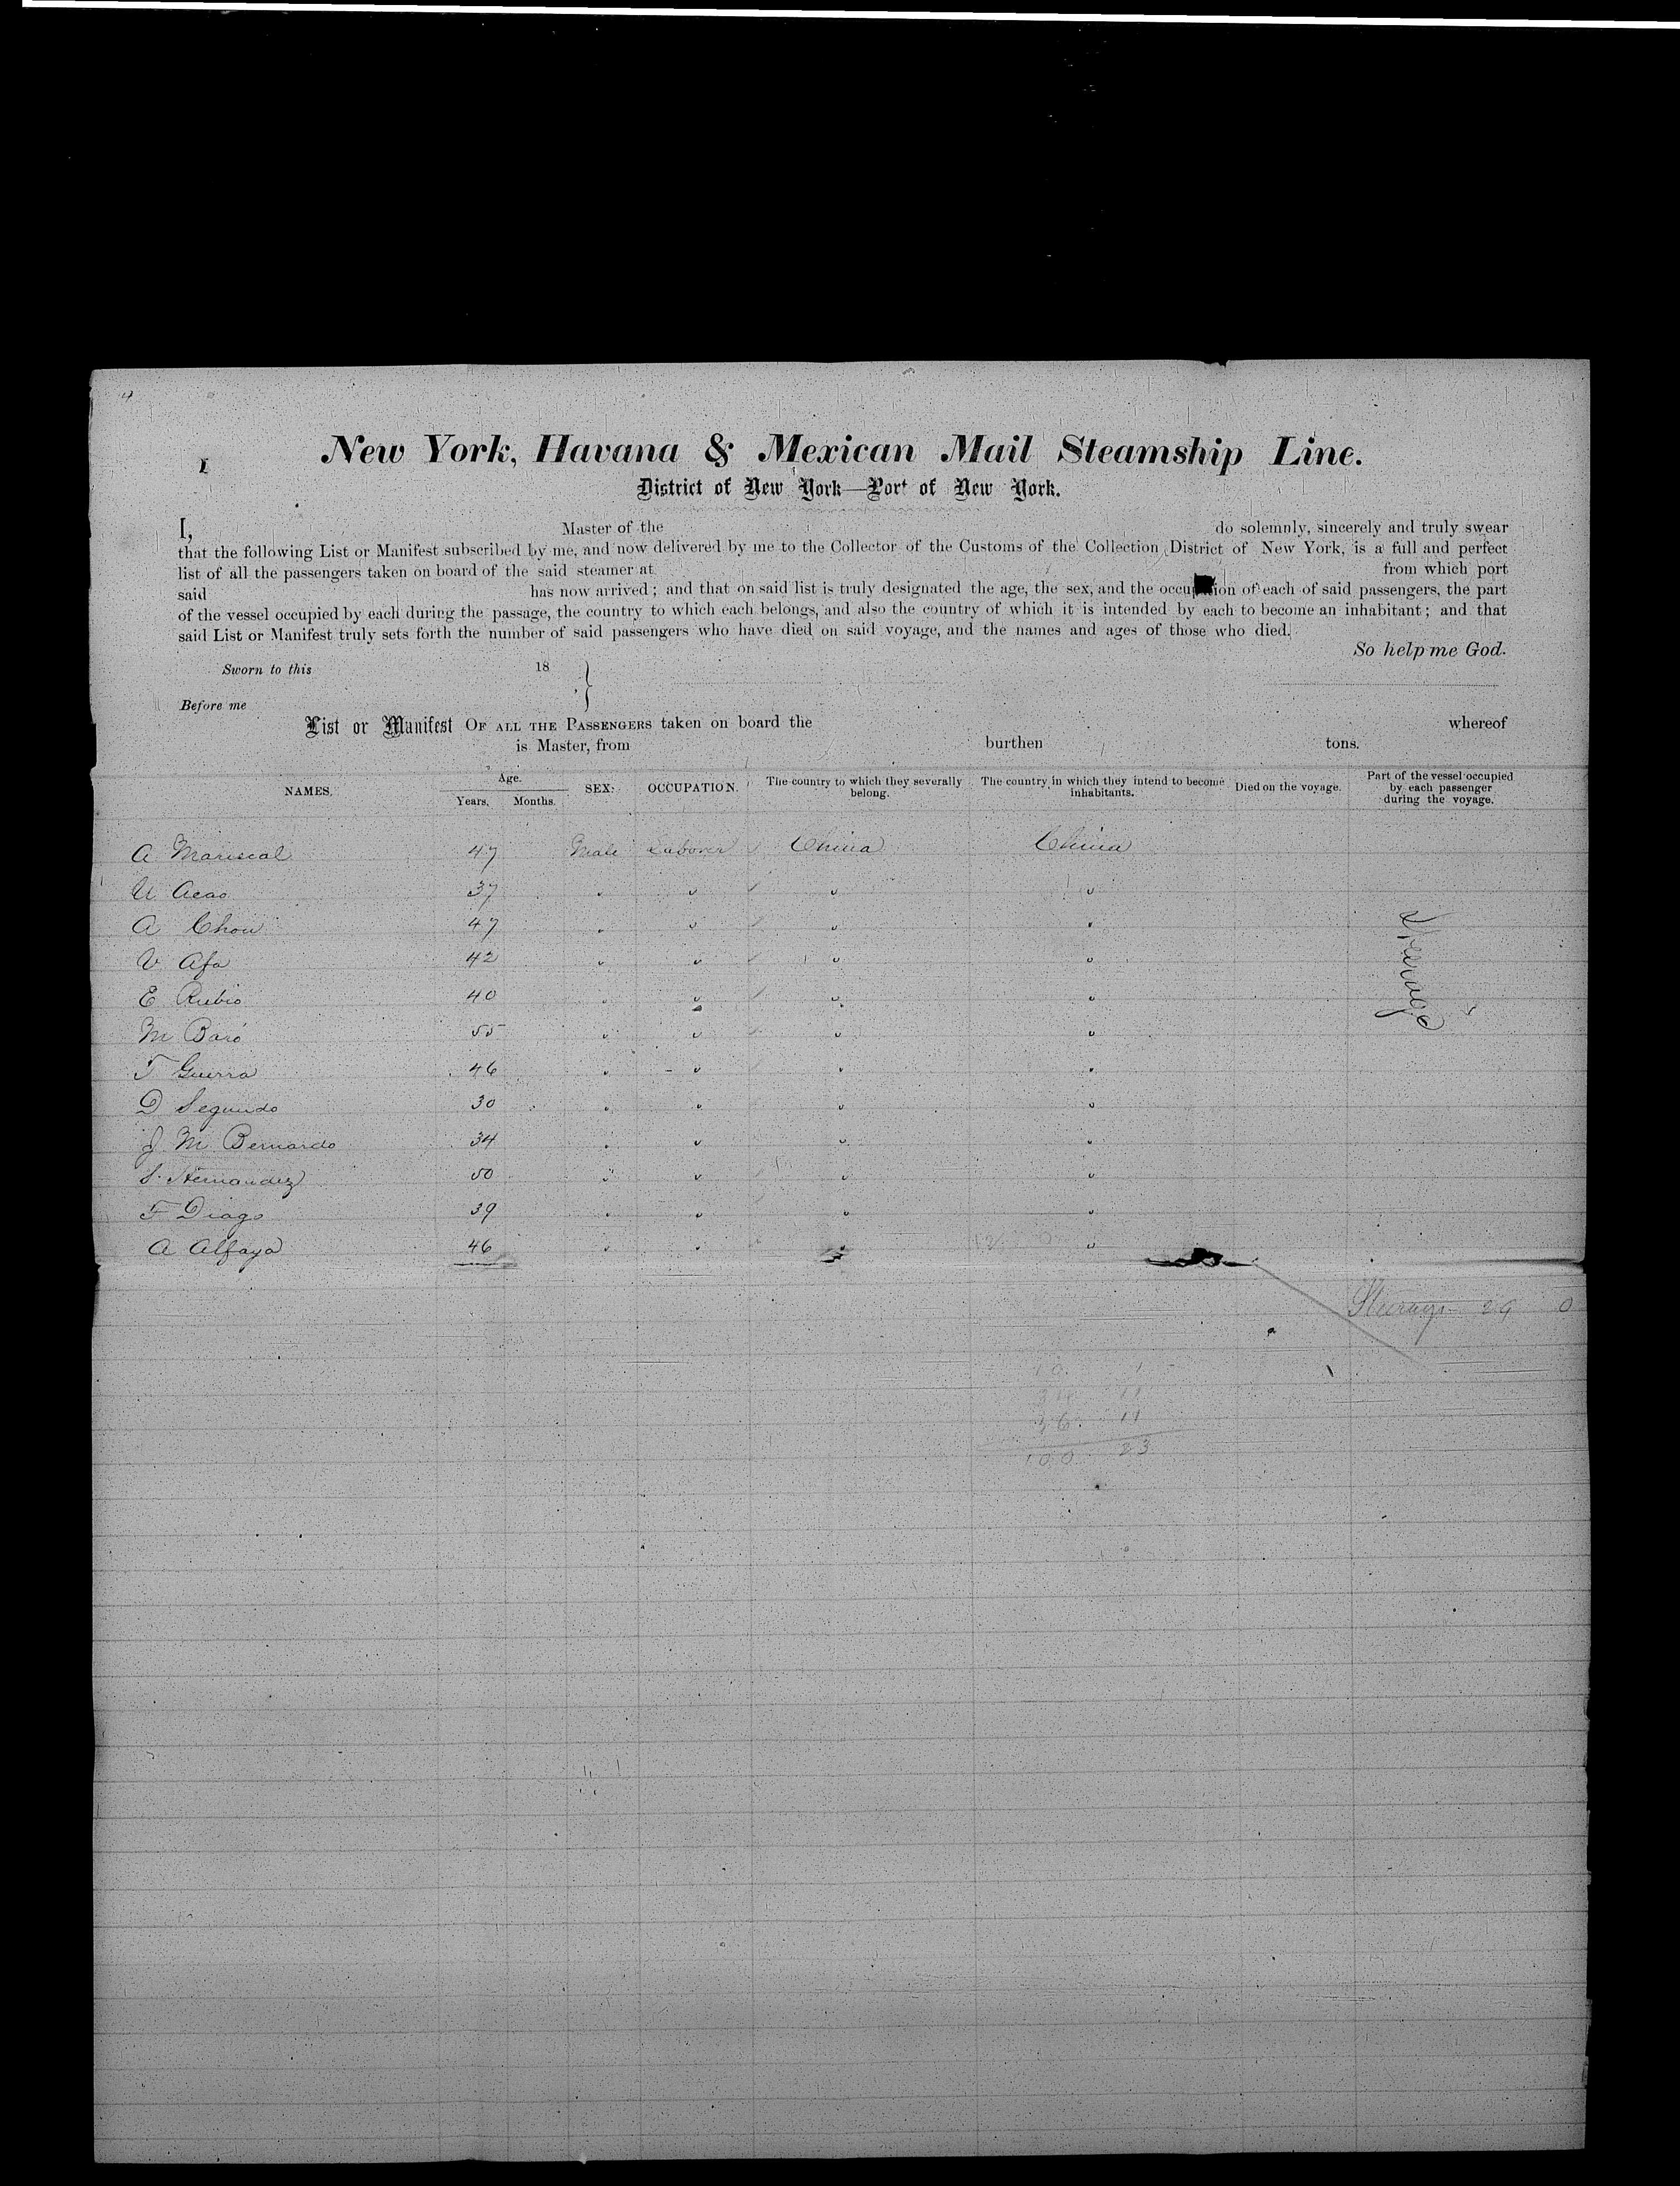 4
I
New York, Havana & Mexican Mail Steamship Line.
District of New York—Port of New York.
I, Master of the do solemnly, sincerely and truly swear
that the following List or Manifest subscribed by me, and now delivered by me to the Collector of the Customs of the Collection District of New York, is a full and perfect
list of all the passengers taken on board of the said steamer at from which port
said has now arrived; and that on said list is truly designated the age, the sex, and the occupation of each of said passengers, the part
of the vessel occupied by each during the passage, the country to which each belongs, and also the country of which it is intended by each to become an inhabitant; and that
said List or Manifest truly sets forth the number of said passengers who have died on said voyage, and the names and ages of those who died.
So help me God.
Sworn to this 18
Before me
List or Manifest OF ALL THE PASSENGERS taken on board the whereof
is Master, from burthen tons.
NAMES. Age. Years. Months. SEX. OCCUPATION. The country to which they severally belong. The country in which they intend to become inhabitants. Died on the voyage. Part of the vessel occupied by each passenger during the voyage.
A Mariscal 47 Male Laborer China China
U Acao 37 " " " "
A Chou 47 " " " "
V Afa 42 " " " "
E Rubio 40 " " " "
M Baró 55 " " " "
T Guerra 46 " " " "
D Segundo 30 " " " "
J M Bernardo 34 " " " "
S. Hernandez 50 " " " "
F Diago 39 " " " "
A Alfaya 46 " " " "
Steerage
Steerage 29 0
10 1
34 11
36 11
100 23